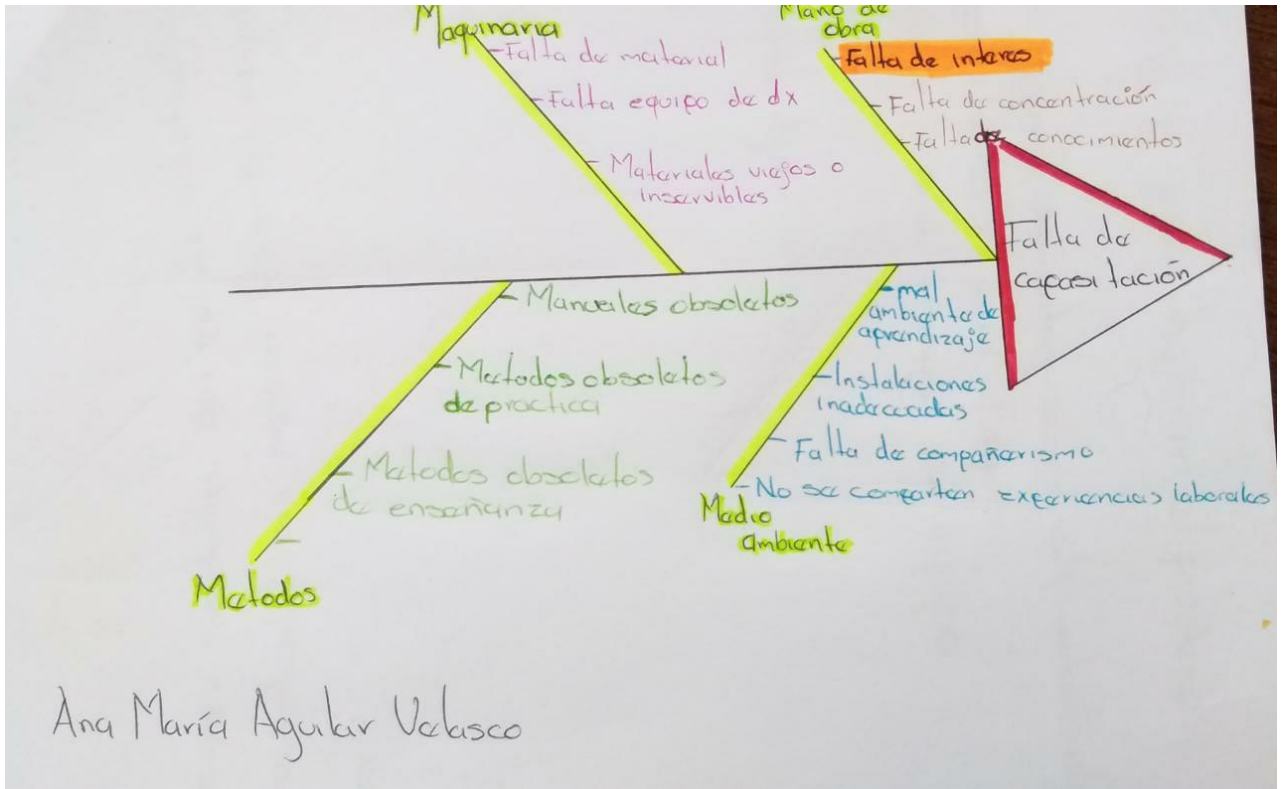 Maquinaria
-Falta de material
-Falta equipo de dx
-Materiales viejos o
inservibles
Mano de
obra
-Falta de interes
-Falta de concentración
-Falta de conocimientos
Falta de
capasitación
-Manuales obsoletos
-Metodos obsoletos
de practica
-Metodos obsoletos
de enseñanza
-
Metodos
-mal
ambiente de
aprendizaje
-Instalaciones
inadecuadas
-Falta de compañerismo
-No se comparten experiencias laborales
Medio
ambiente
Ana María Aguilar Velasco